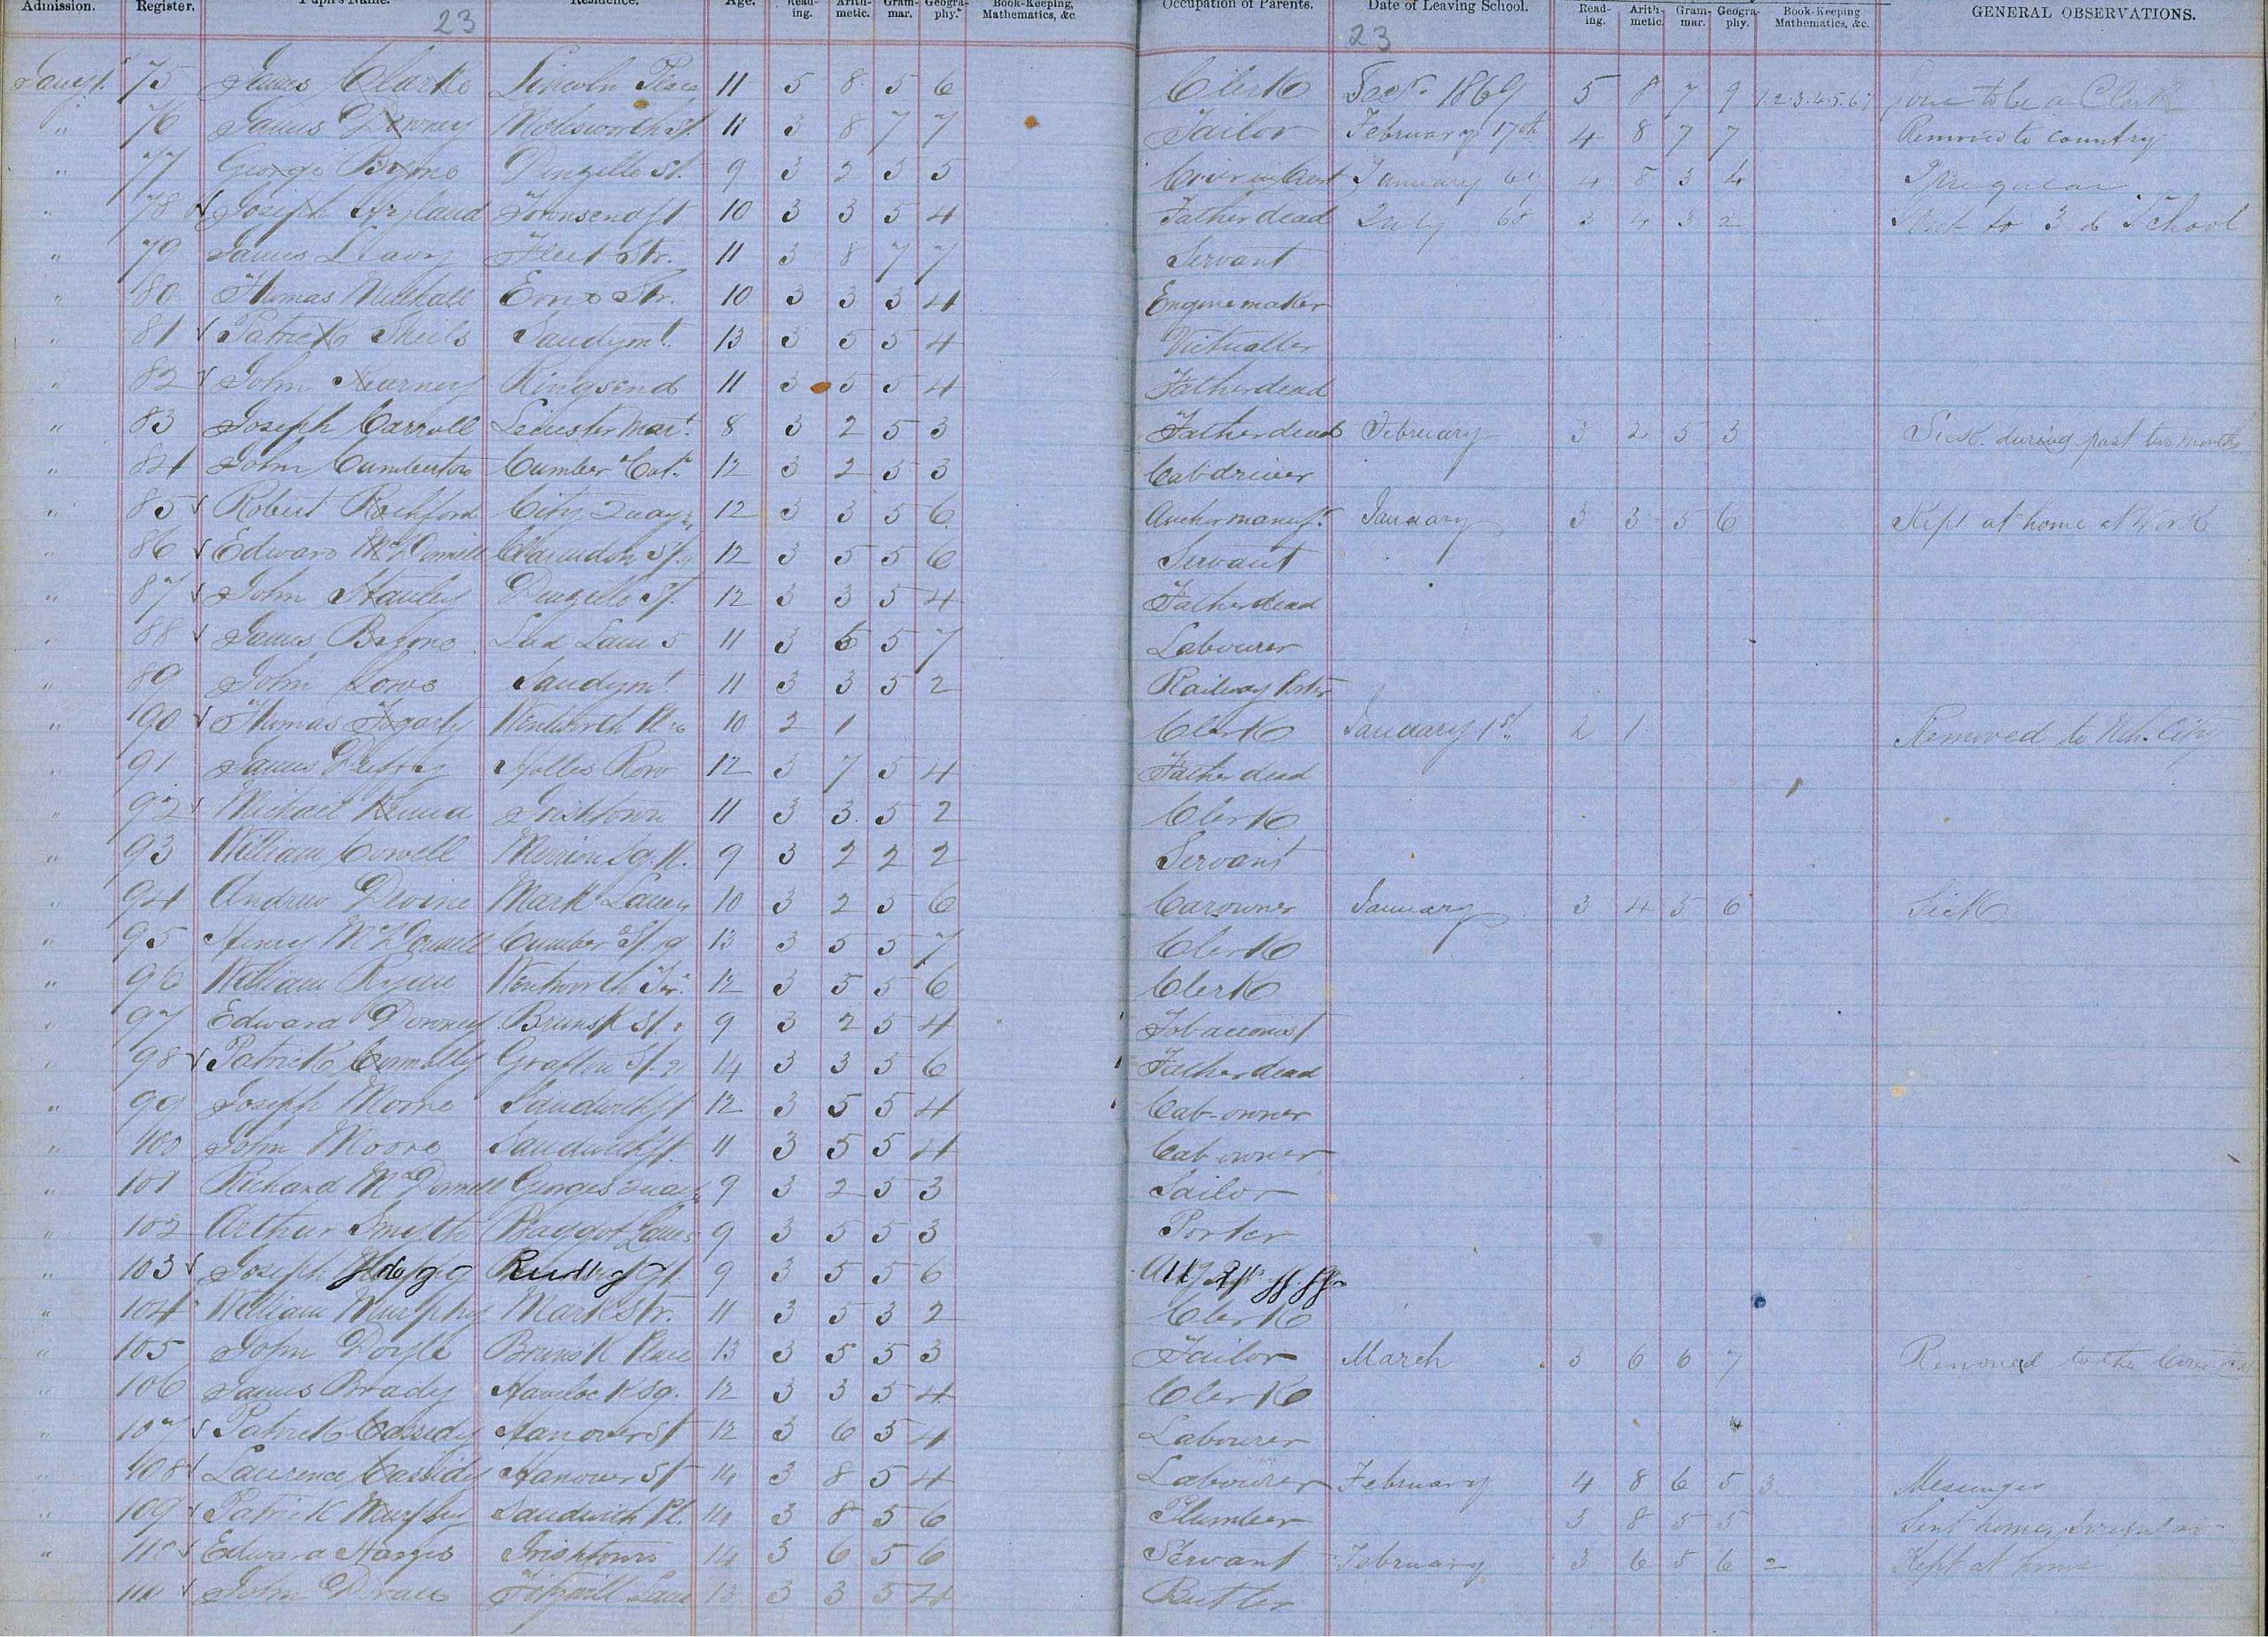 Admission. Register. Pupil's Name. Residence. Age. Read-ing. Arith-metic. Gram-mar. Geogra-phy. Book-Keeping, Mathematics, &c. Occupation of Parents. Date of Leaving School. Read-ing. Arith-metic. Gram-mar. Geogra-phy. Book-Keeping Mathematics, &c. GENERAL OBSERVATIONS.
23 23
75 James Clarke Lincoln Place 11 5 8 5 6 Clerk 1869 5 8 7 9 1.2.3.4.5.6.7 gone to be a Clerk
" 76 James Downey Molesworth St. 11 3 8 7 7 Tailor February 17th 4 8 7 7 Removed to country
" 77 George Byrne Denzille St. 9 3 2 3 5 January 69 4 5 3 4 Irregular
" 78 Joseph Hyland Townsend St 10 3 3 5 4 Father dead July 68 3 4 3 2 Sent to 3d School
" 79 James Leavy Fleet Str. 11 3 8 7 7 Servant
" 80 Thomas Mulhall Erne Str. 10 3 3 3 4 Engine maker
" 81 Patrick Sheils Sandymt. 13 3 5 5 4 Victualler
" 82 John Kearney Ringsend 11 3 5 5 4 Father dead
" 83 Joseph Carroll Leinster Mart. 8 3 2 5 3 Father dead February 3 2 5 3 Sick during past two months
" 84 John Cumberton Cumber Cot. 12 3 2 5 3 Cab driver
" 85 Robert Rochford City Quay 12 3 3 5 6 Anchor manufr. January 3 3 5 6 Kept at home at Work
" 86 Edward McDonnell Clarendon St. 12 3 5 5 6 Servant
" 87 John Stanley Denzille St. 12 3 3 5 4 Father dead
" 88 James Byrne Lad Lane 5 11 3 6 5 7 Labourer
" 89 John Lowe Sandymt. 11 3 3 5 2 Railway Porter
" 90 Thomas Fogarty Wentworth Place 10 2 1 Clerk January 1st. 2 1 Removed to Nth. City
" 91 James Duffy Holles Row 12 3 7 5 4 Father dead
" 92 Michael Kenna Irishtown 11 3 3 5 2 Clerk
" 93 William Cowell Merrion Sq. N. 9 3 2 2 2 Servant
" 94 Andrew Devine Mark Lane 10 3 2 5 6 Car owner January 3 4 5 6 Sick
" 95 Henry McDonnell Cumber St. 9 13 3 5 5 7 Clerk
" 96 William Ryan Wentworth 12 3 5 5 6 Clerk
" 97 Edward Downey Brunsk St. 9 3 2 5 4 Tobacconist
" 98 Patrick Connolly Grafton St. 14 3 3 5 6 Father dead
" 99 Joseph Moore Sandwith St 12 3 5 5 4 Cab-owner
" 100 John Moore Sandwith St. 11 3 5 5 4 Cab owner
" 101 Richard McDonnell Georges Quay 9 3 2 5 3 Sailor
" 102 Arthur Smyth Baggot Lane 9 3 5 5 3 Porter
" 103 Joseph 9 3 5 5 6
" 104 William Murphy Mark Str. 11 3 5 3 2 Clerk
" 105 John Doyle Brunsk Place 13 3 5 5 3 Tailor March 3 6 6 7 Removed to the Country
" 106 James Brady Havelock Sq. 12 3 3 5 4 Clerk
" 107 Patrick Cassidy Hanover St 12 3 6 5 4 Labourer
" 108 Laurence Cassidy Hanover St 14 3 8 5 4 Labourer February 4 8 6 5 3 Messenger
" 109 Patrick Murphy Sandwith Pl. 14 3 8 5 6 Plumber 3 8 5 5 Sent home, Irregular
" 110 Edward Irishtown 14 3 6 5 6 Servant February 3 6 5 6 2 Kept at home
111 John Doran Lane 13 3 3 5 4 Butler